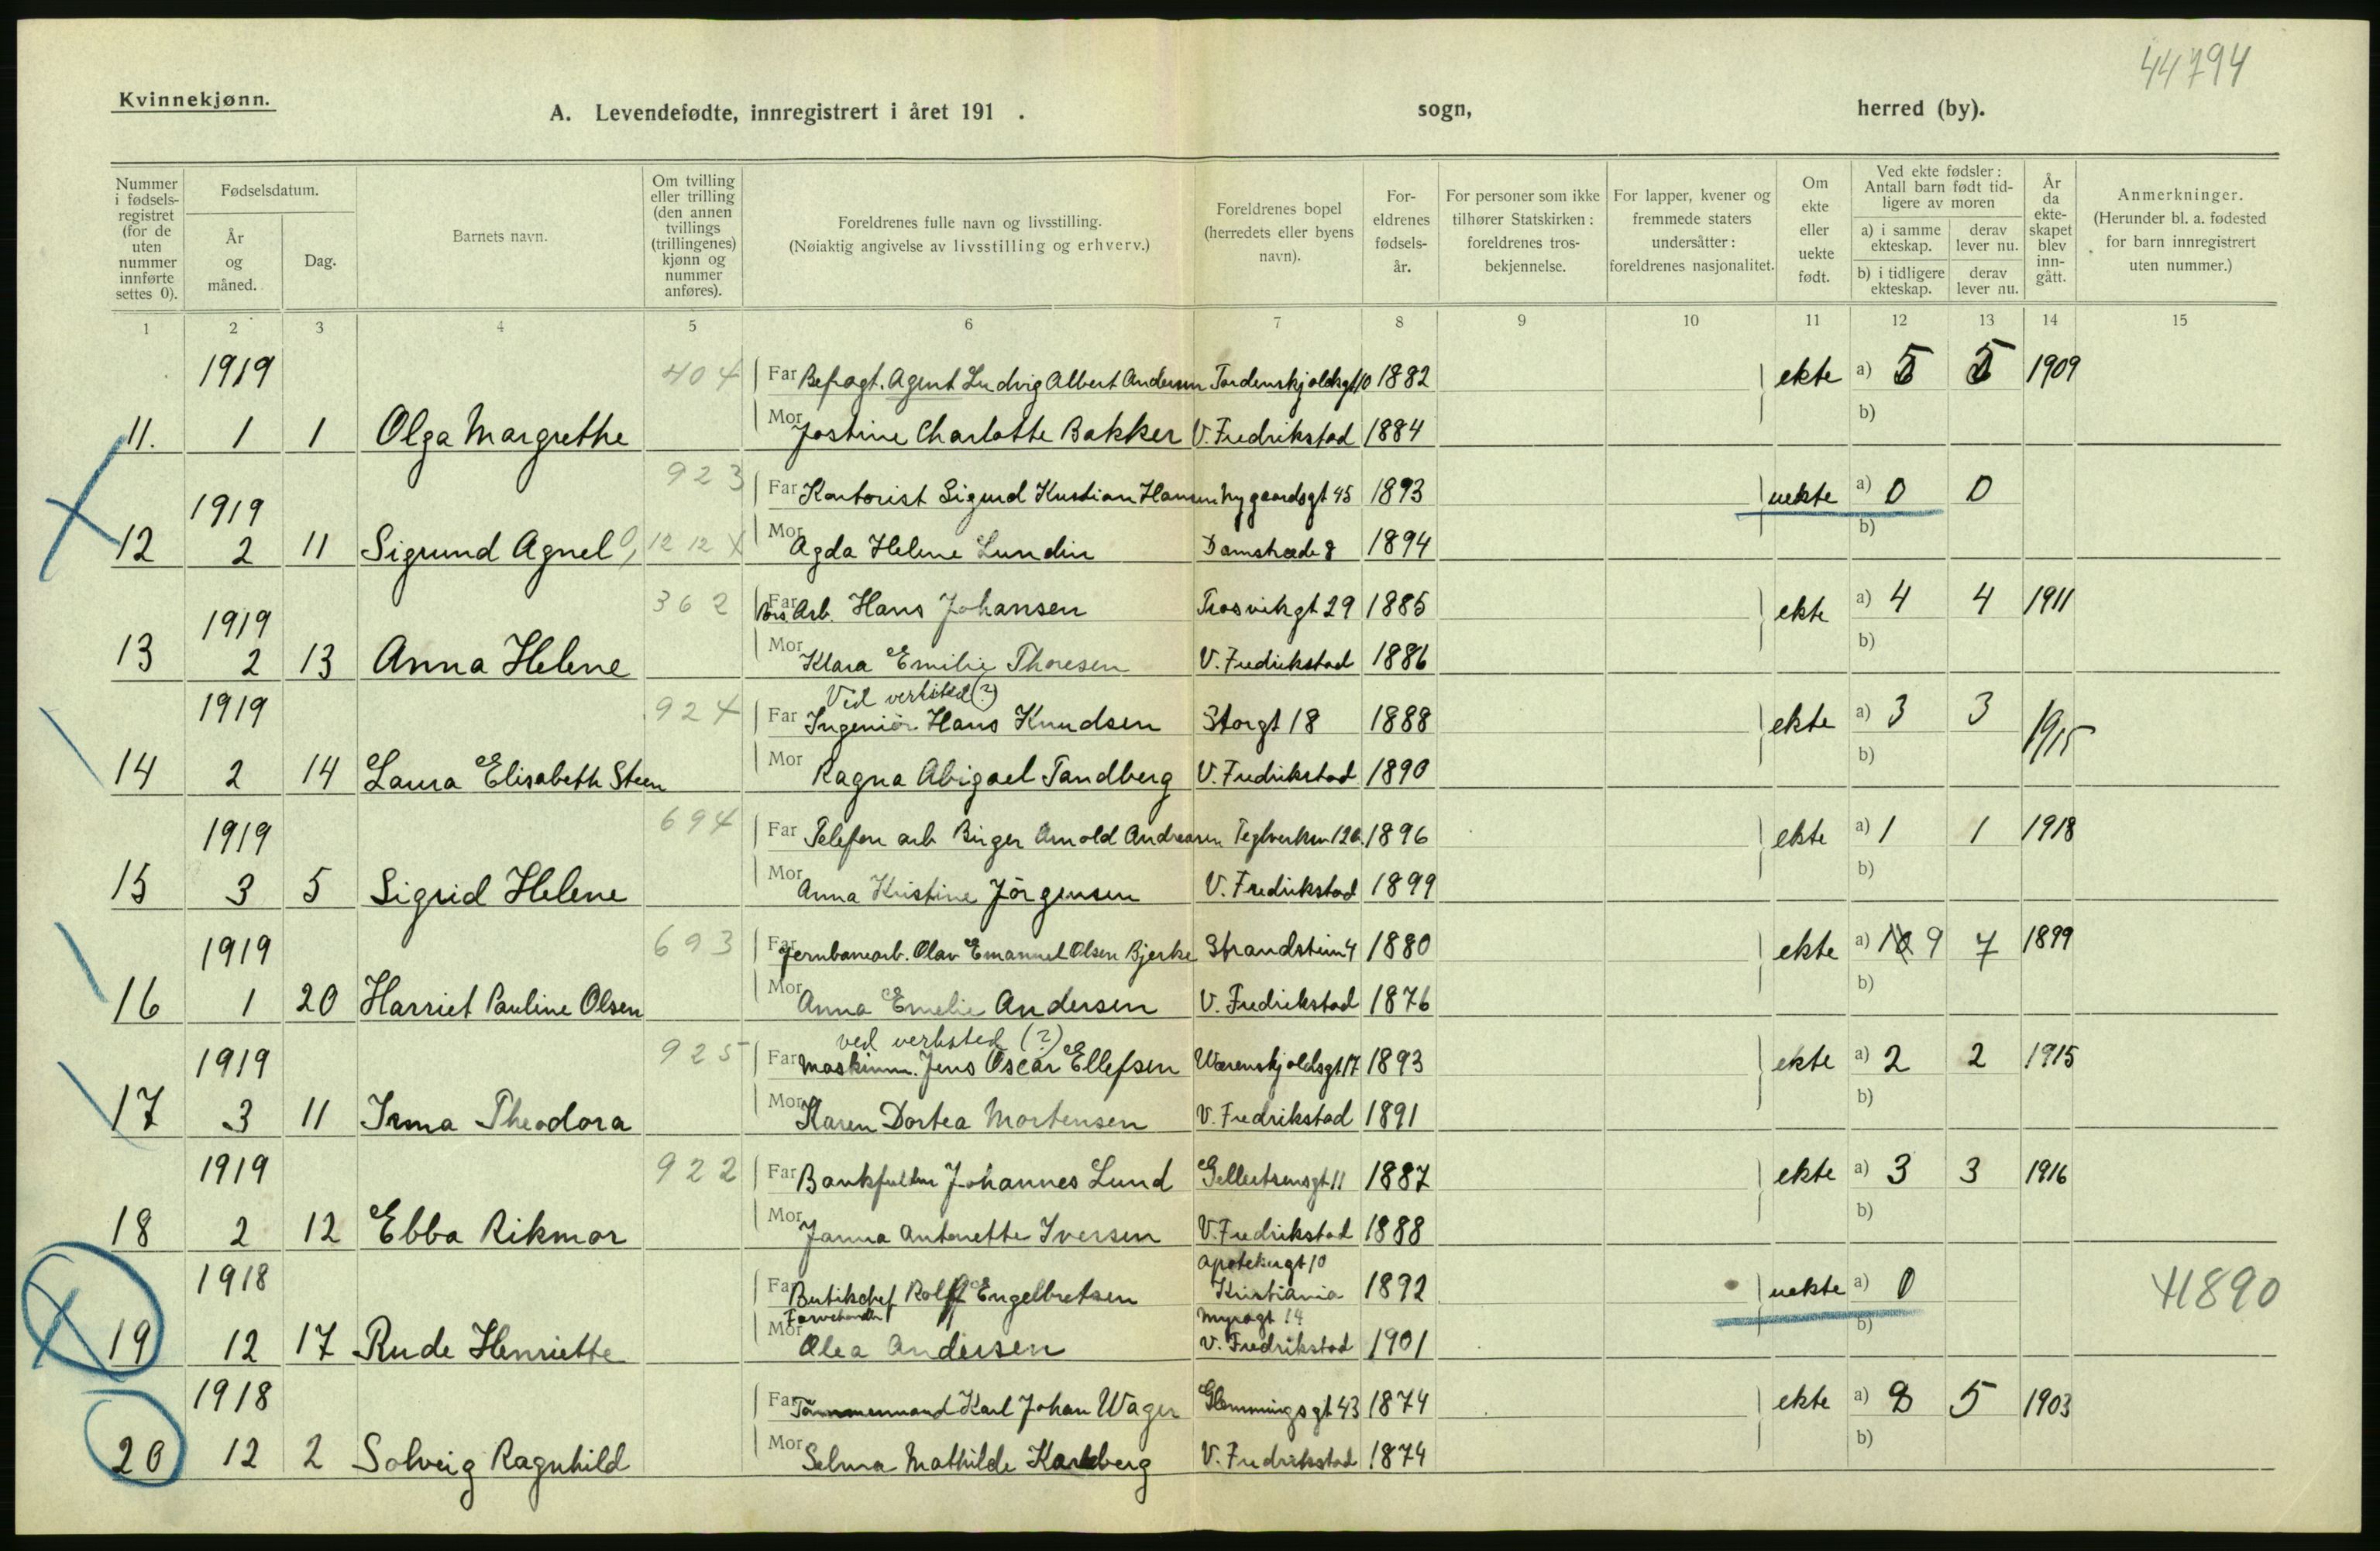 44794
Kvinnekjønn.
A. Levendefødte, innregistrert i året 191 . sogn, herred (by).
Nummer i fødsels-registret (for de uten nummer innførte settes 0).
Fødselsdatum.
År og måned.
Dag.
Barnets navn.
Om tvilling eller trilling (den annen tvillings (trillingenes) kjønn og nummer anføres).
Foreldrenes fulle navn og livsstilling.
(Nøiaktig angivelse av livsstilling og erhverv.)
Foreldrenes bopel (herredets eller byens navn).
For-eldrenes fødsels-år.
For personer som ikke tilhører Statskirken: foreldrenes tros-bekjennelse.
For lapper, kvener og fremmede staters undersåtter: foreldrenes nasjonalitet.
Om ekte eller uekte født.
Ved ekte fødsler: Antall barn født tid-ligere av moren
a) i samme ekteskap.
derav lever nu.
b) i tidligere ekteskap.
derav lever nu.
År da ekte-skapet blev inn-gått.
Anmerkninger.
(Herunder bl. a. fødested for barn innregistrert uten nummer.)
1 2 3 4 5 6 7 8 9 10 11 12 13 14 15
1919 404 Far Befragt. Agent Ludvig Albert Andersen Tordenskjoldsgt 10 1882 ekte a) 5 5 1909
11. 1 1 Olga Margrethe Mor Jostine Charlotte Bakker V. Fredrikstad 1884 b)
1919 923 Far Kontorist Sigurd Kristian Hansen Nygaardsgt 45 1893 uekte a) 0 0
12 2 11 Sigrund Agnel 12 12 X Mor Agda Helene Lundin Damstræde 8 1894 b)
1919 362 Far Arb. Hans Johansen Trosvikgt 29 1885 ekte a) 4 4 1911
13 2 13 Anna Helene Mor Klara Emilie Thoresen V. Fredrikstad 1886 b)
Ved verksted (?)
1919 924 Far Ingeniör Hans Knudsen Storgt 18 1888 ekte a) 3 3 1915
14 2 14 Laura Elisabeth Steen Mor Ragna Abigael Tandberg V. Fredrikstad 1890 b)
1919 694 Far Telefon arb Birger Arnold Andreasen Teglverksv 126. 1896 ekte a) 1 1 1918
15 3 5 Sigrid Helene Mor Anna Kristine Jörgensen V. Fredrikstad 1899 b)
1919 693 Far Jernbanearb. Olav Emanuel Olsen Bjerke Strandstien 4 1880 ekte a) 10 9 7 1899
16 1 20 Harriet Pauline Olsen Mor Anna Emelie Andersen V. Fredrikstad 1876 b)
ved verksted (?)
1919 925 Far Maskinm. Jens Oscar Ellefsen Wærenskjoldsgt 17 1893 ekte a) 2 2 1915
17 3 11 Irma Theodora Mor Karen Dortea Mortensen V. Fredrikstad 1891 b)
1919 922 Far Bankfuldm Johannes Lund Gellertsensgt 11 1887 ekte a) 3 3 1916
18 2 12 Ebba Rikmor Mor Janna Antonette Iversen V. Fredrikstad 1888 b)
Apotekergt 10
1918 Far Butikchef Rolf Engelbretsen Kristiania 1892 uekte a) 0 41890
Farvehandle Myragt 14
19 12 17 Rude Henriette Mor Olea Andersen V. Fredrikstad 1901 b)
1918 Far Tömmermand Karl Johan Wager Glemmings gt 43 1874 ekte a) 8 5 1903
20 12 2 Solveig Ragnhild Mor Selma Mathilde Karlberg V. Fredrikstad 1874 b)